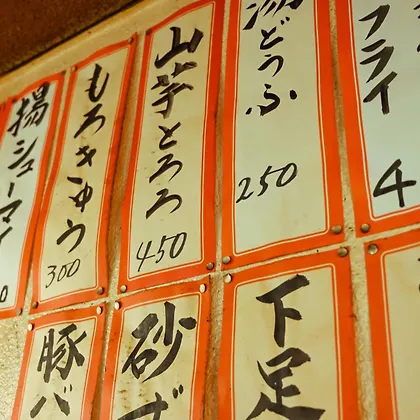 フライ
4
湯どうふ
250
山芋とろろ
450
もろきゅう
300
揚シューマイ
0
下足
砂
豚バ